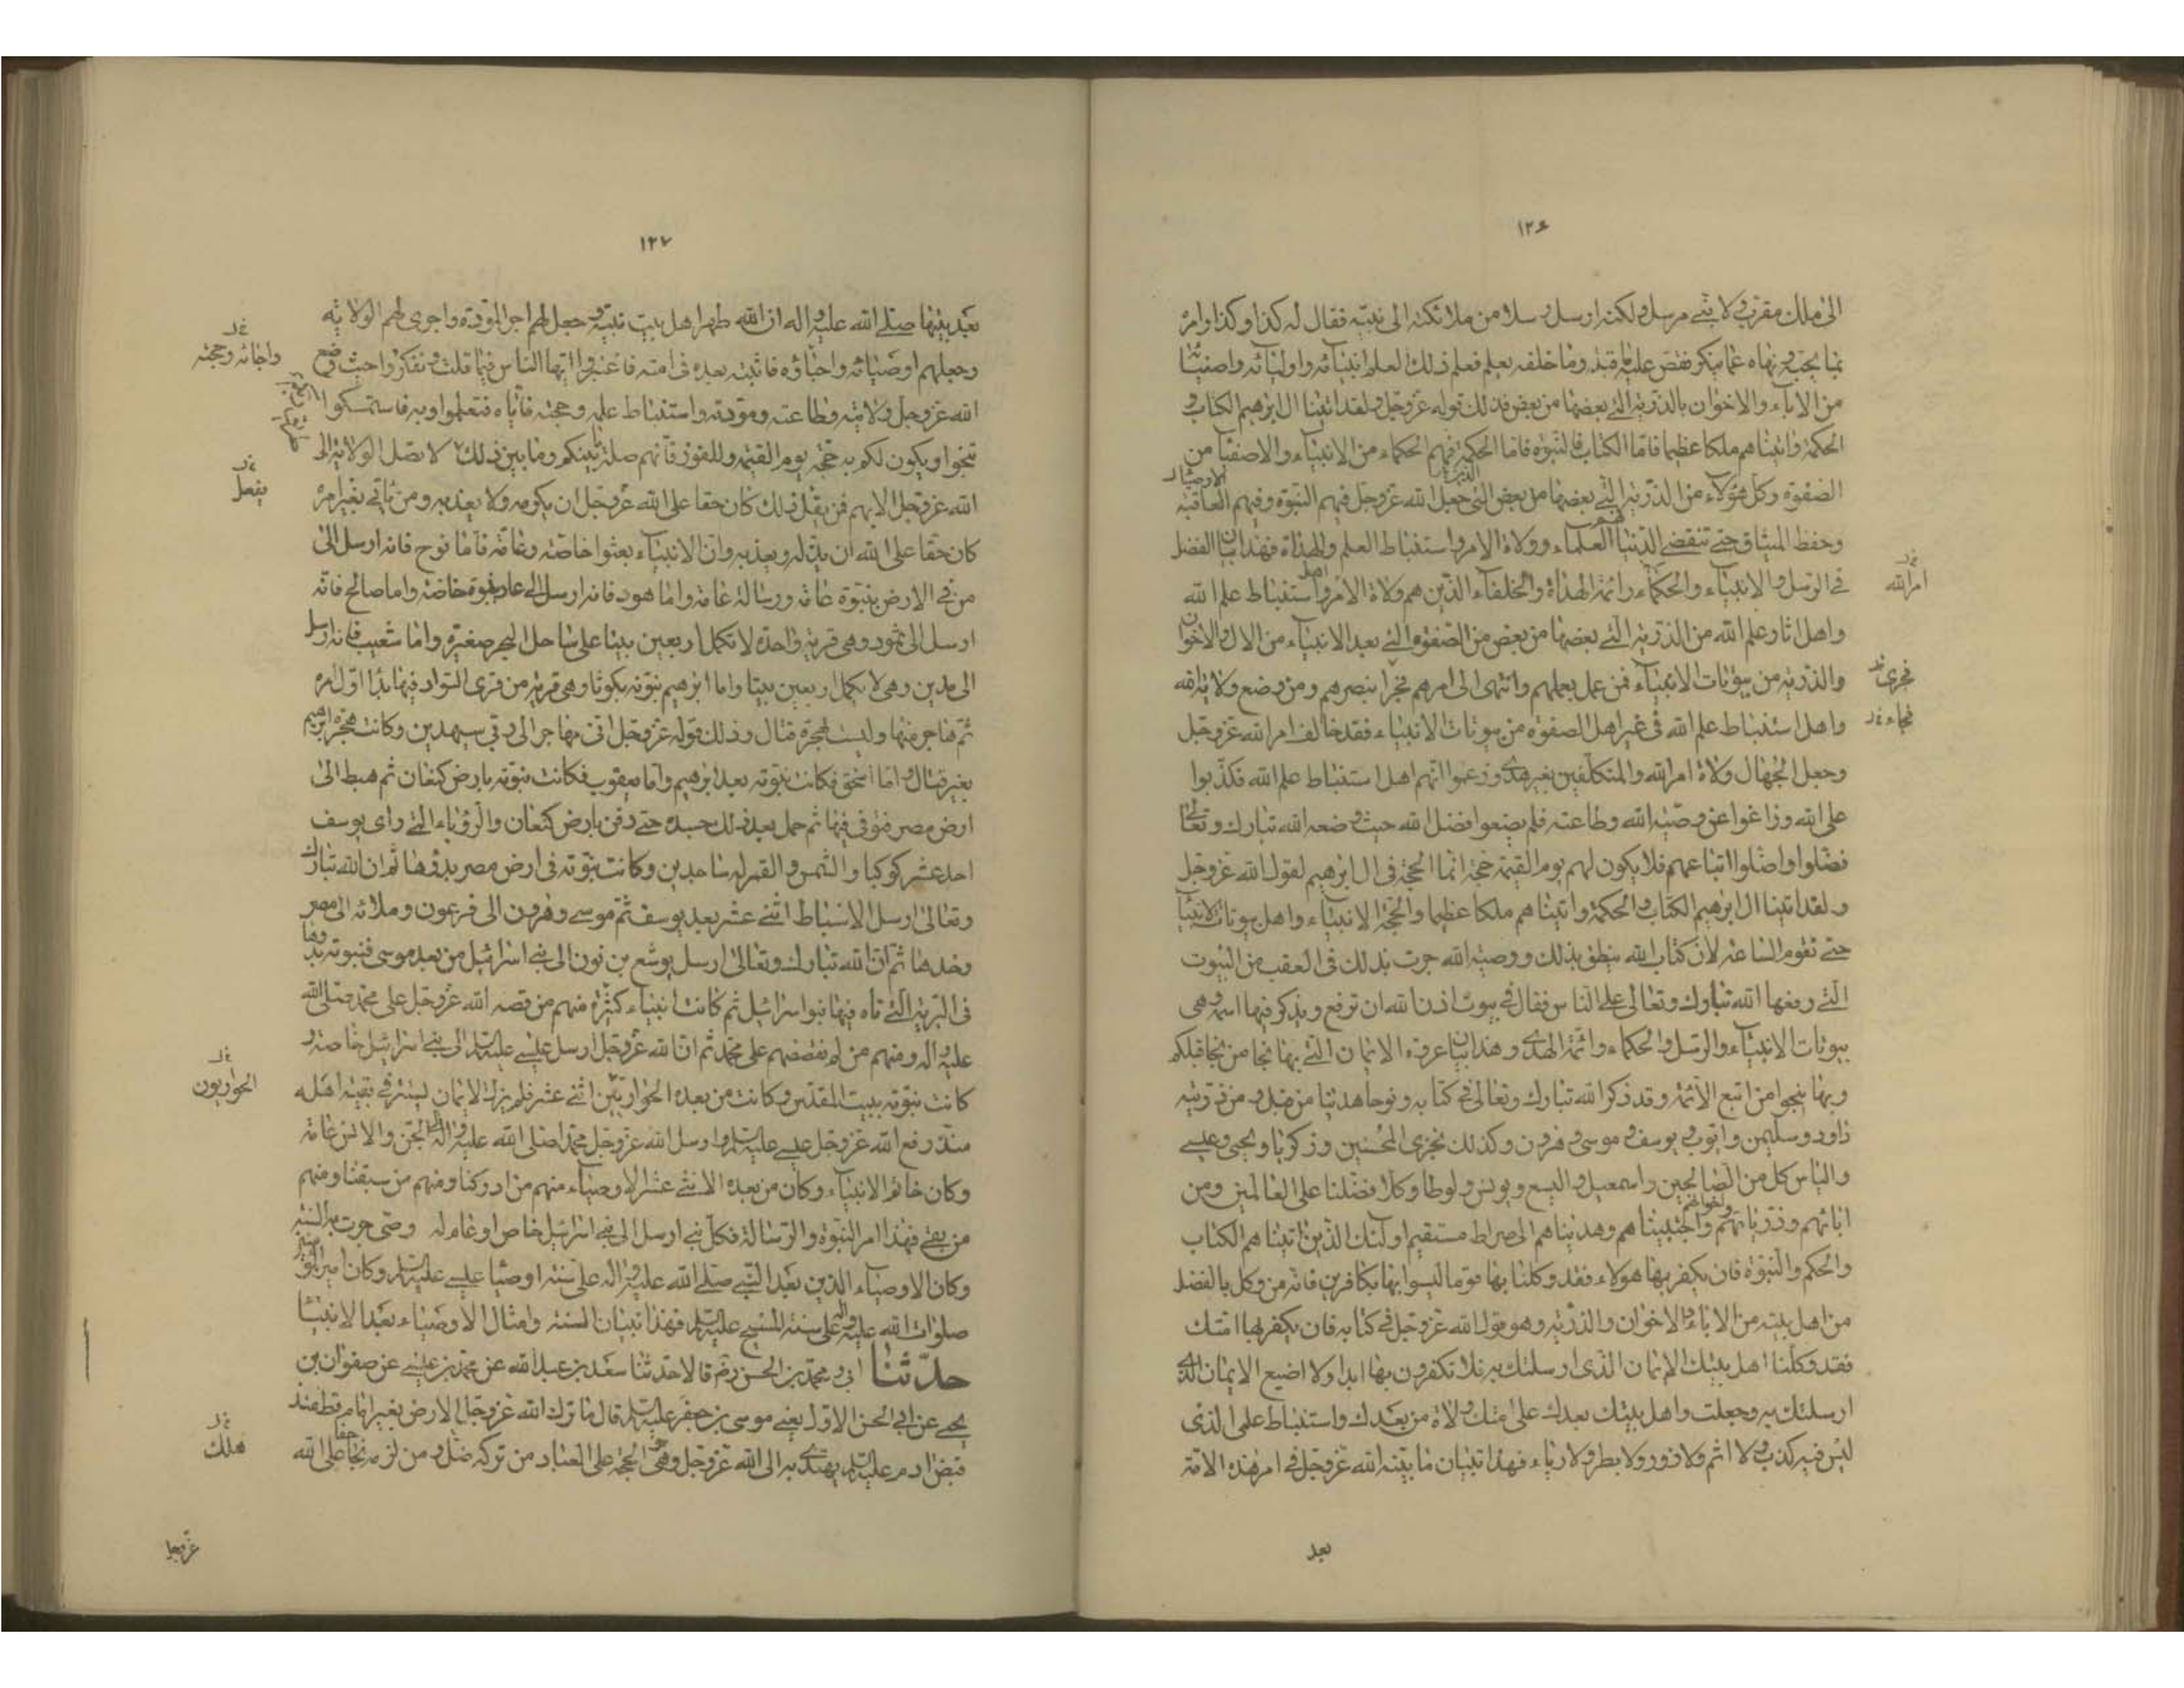 ١٢٦
الى ملك مقرب ولا نبي مرسل ولكنه ارسل رسلا من ملائكته الى نبيه فقال له كذا وكذا وامره
بما يجب ونهاه عما ينكر فقص عليه ما قبله وما خلفه بعلم فعلم ذلك العلم انبيائه واوليائه واصفيائه
من الاباء والاخوان بالذرية التي بعضها من بعض فذلك قوله عز وجل ولقد اتينا ال ابرهيم الكتاب و
الحكمة واتيناهم ملكا عظيما فاما الكتاب فالنبوة فاما الحكمة فهم الحكماء من الانبياء والاصفياء من
الصفوة وكل هؤلاء من الذرية التي بعضها من بعض الذين جعل الله عز وجل فيهم النبوة وفيهم العاقبة
وحفظ الميثاق حتى تنقضي الدنيا فهم العلماء وولاة الامر واستنباط العلم والهداة فهذا بيان الفضل
في الرسل والانبياء والحكماء وائمة الهداة والخلفاء الذين هم ولاة الامر واهل استنباط علم الله
امر الله
واهل اثار علم الله من الذرية التي بعضها من بعض من الصفوة التي بعد الانبياء من الال والاخوان
والذرية من بيوتات الانبياء فمن عمل بعملهم وانتهى الى امرهم نجا بنصرهم ومن وضع ولاية الله
واهل استنباط علم الله في غير اهل الصفوة من بيوتات الانبياء فقد خالف امر الله عز وجل
وجعل الجهال ولاة امر الله والمتكلفين بغير هدى وزعموا انهم اهل استنباط علم الله فكذبوا
على الله وزاغوا عن وصية الله وطاعته فلم يضعوا فضل الله حيث وضعه الله تبارك وتعالى
فضلوا واضلوا اتباعهم فلا يكون لهم يوم القيمة حجة انما الحجة في ال ابرهيم لقول الله عز وجل
ولقد اتينا ال ابرهيم الكتاب والحكمة واتيناهم ملكا عظيما والحجة الانبياء واهل بيوتات الانبياء
حتى تقوم الساعة لان كتاب الله ينطق بذلك ووصية الله جرت بذلك في العقب من البيوت
التي رفعها الله تبارك وتعالى على الناس فقال في بيوت اذن الله ان ترفع ويذكر فيها اسمه وهي
بيوتات الانبياء والرسل والحكماء وائمة الهدى وهذا بيان عروة الايمان التي بها نجا من نجا قبلكم
وبها ينجوا من اتبع الائمة وقد ذكر الله تبارك وتعالى في كتابه ونوحا هدينا من قبل ومن ذريته
داود وسليمن وايوب ويوسف وموسى وهرون وكذلك نجزي المحسنين وزكريا ويحيى وعيسى
والياس كل من الصالحين واسمعيل واليسع ويونس ولوطا وكلا فضلنا على العالمين ومن
ابائهم وذرياتهم واخوانهم واجتبيناهم وهديناهم الى صراط مستقيم اولئك الذين اتيناهم الكتاب
والحكم والنبوة فان يكفر بها هولاء فقد وكلنا بها قوما ليسوا بها بكافرين فانه من وكل بالفضل
من اهل بيته من الاباء والاخوان والذرية وهو قول الله عز وجل في كتابه فان يكفر بها امتك
فقد وكلنا اهل بيتك الايمان الذي ارسلتك به فلا تكفرون بها ابدا ولا اضيع الايمان الذي
ارسلتك به وجعلت واهل بيتك بعدك على امتك ولاة من بعدك واستنباط علمي الذي
ليس فيه كذب ولا اثم ولا زور ولا بطر ولا رياء فهذا تبيان ما بينه الله عز وجل في امر هذه الامة
بعد
١٢٧
بعد نبيها صلى الله عليه واله ان الله طهر اهل بيت نبيه وجعل لهم اجر المودة واجرى لهم الولاية
وجعلهم اوصيائه واحباؤه فاثبته بعده في امته فاعتبروا ايها الناس فيما قلت وتفكروا حيث وضع
الله عز وجل ولايته وطاعته ومودته واستنباط علمه وحجته فاياه فتعلموا وبه فاستمسكوا
تنجوا ويكون لكم به حجة يوم القيمة والفوز فانهم صلة بينكم وما بين ذلك لا تصل الولاية الى
يفعل
الله عز وجل الا بهم فمن يقبل ذلك كان حقا على الله عز وجل ان يكرمه ولا يعذبه ومن ياتي بغير امره
كان حقا على الله ان يذله ويعذبه وان الانبياء بعثوا خاصة وعامة فاما نوح فانه ارسل الى
من في الارض بنبوة عامة ورسالة عامة واما هود فانه ارسل الى عاد بنبوة خاصة واما صالح فانه
ارسل الى ثمود وهي قرية واحدة لا تكمل اربعين بيتا على ساحل البحر صغيرة واما شعيب فانه ارسل
الى مدين وهي لا تكمل اربعين بيتا واما ابرهيم نبوته بكوثا وهي قرية من قرى السواد فيها بدا اول امره
ثم هاجر منها وليست بهجرة قتال وذلك قوله عز وجل اني مهاجر الى ربي سيهدين وكانت هجرة ابرهيم
بغير قتال واما اسحق فكانت نبوته بعد ابرهيم واما يعقوب فكانت نبوته بارض كنعان ثم هبط الى
ارض مصر فتوفي فيها ثم حمل بعد ذلك جسده حتى دفن بارض كنعان والرؤياء التي راى يوسف
احد عشر كوكبا والشمس والقمر له ساجدين وكانت نبوته في ارض مصر بدؤها ثم ان الله تبارك
وتعالى ارسل الاسباط اثني عشر بعد يوسف ثم موسى وهرون الى فرعون وملائه الى مصر
وحدها ثم ان الله تبارك وتعالى ارسل يوشع بن نون الى بني اسرائيل من بعد موسى فنبوته بدؤها
في البرية التي تاه فيها بنوا اسرائيل ثم كانت انبياء كثيرة منهم من قصه الله عز وجل على محمد صلى الله
عليه واله ومنهم من لم نقصصهم على محمد ثم ان الله عز وجل ارسل عيسى عليه السلام الى بني اسرائيل خاصة و
الحواريون
كانت نبوته ببيت المقدس وكانت من بعده الحواريين اثني عشر فلم يزل الايمان يستتر في بقية اهله
منذ رفع الله عز وجل عيسى عليه السلام وارسل الله عز وجل محمدا صلى الله عليه واله الى الجن والانس عامة
وكان خاتم الانبياء وكان من بعده الاثني عشر الاوصياء منهم من ادركنا ومنهم من سبقنا ومنهم
من بقي فهذا امر النبوة والرسالة فكل نبي ارسل الى بني اسرائيل خاص او عام له وصي جرت به السنة
وكان الاوصياء الذين بعد النبي صلى الله عليه واله على سنة اوصيا عيسى عليه السلام وكان امير المؤمنين
صلوات الله عليه واله على سنة المسيح عليه السلام فهذا تبيان السنة وامثال الاوصياء بعد الانبيا
حدثنا ابي ومحمد بن الحسن رض قالا حدثنا سعد بن عبد الله عن محمد بن عيسى عن صفوان بن
يحيى عن ابي الحسن الاول يعني موسى بن جعفر عليه السلام قال ما ترك الله عز وجل الارض بغير امام قط منذ
قبض ادم عليه السلام يهتدى به الى الله عز وجل وهو الحجة على العباد من تركه ضل ومن لزمه نجا حقا على الله
هلك
عز وجل